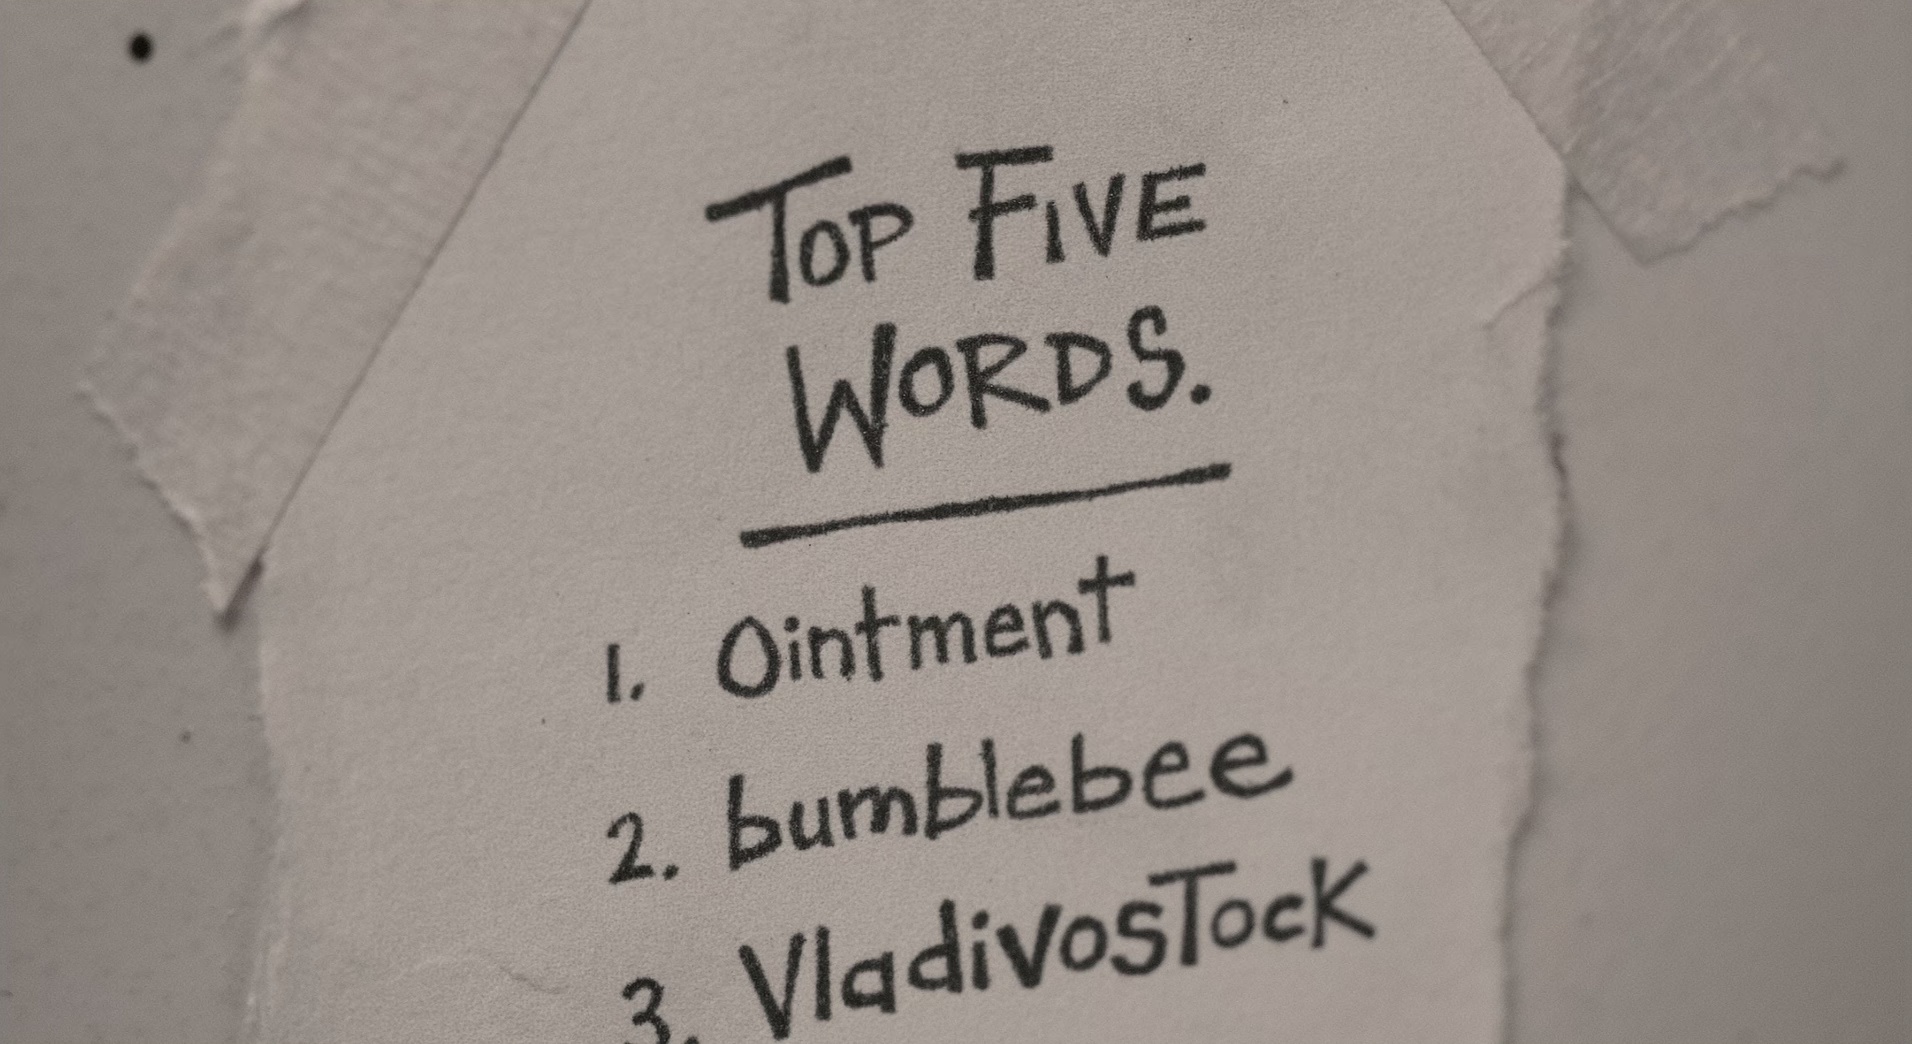 Top Five
Words.
1. Ointment
2. bumblebee
3. Vladivostock